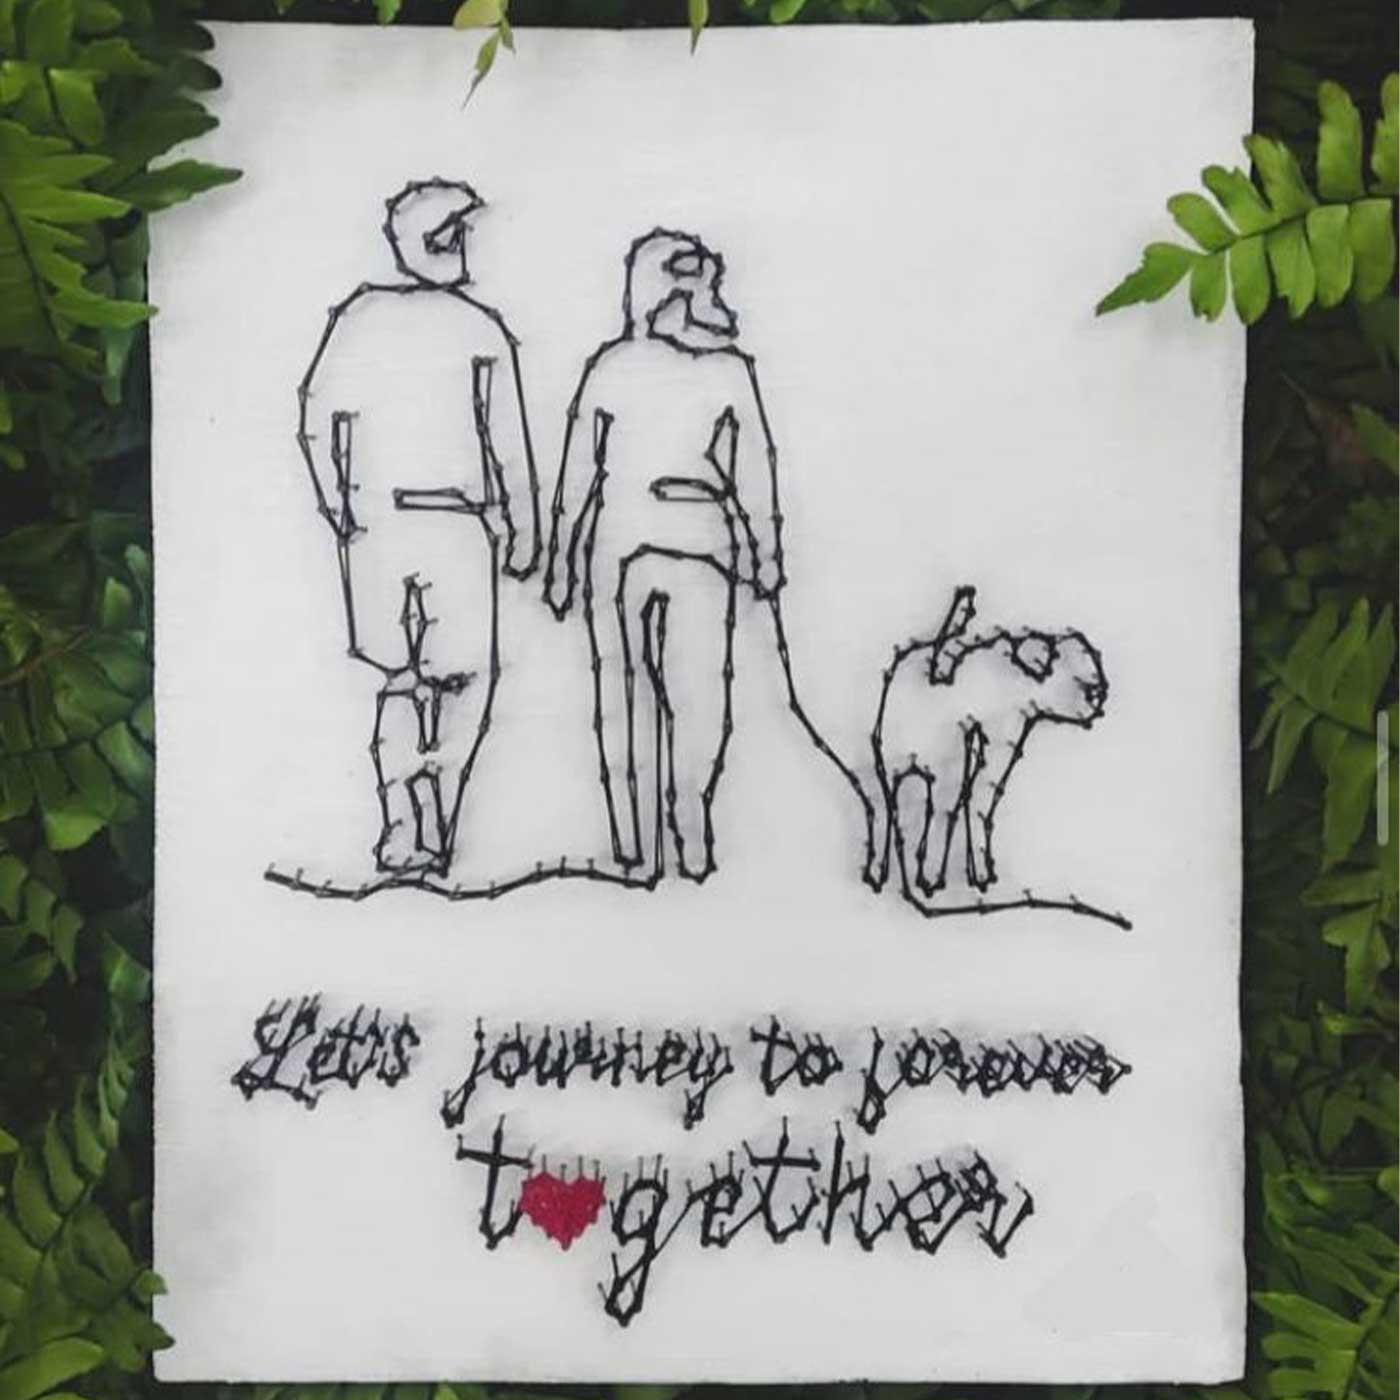 Let's journey to forever
t❤gether